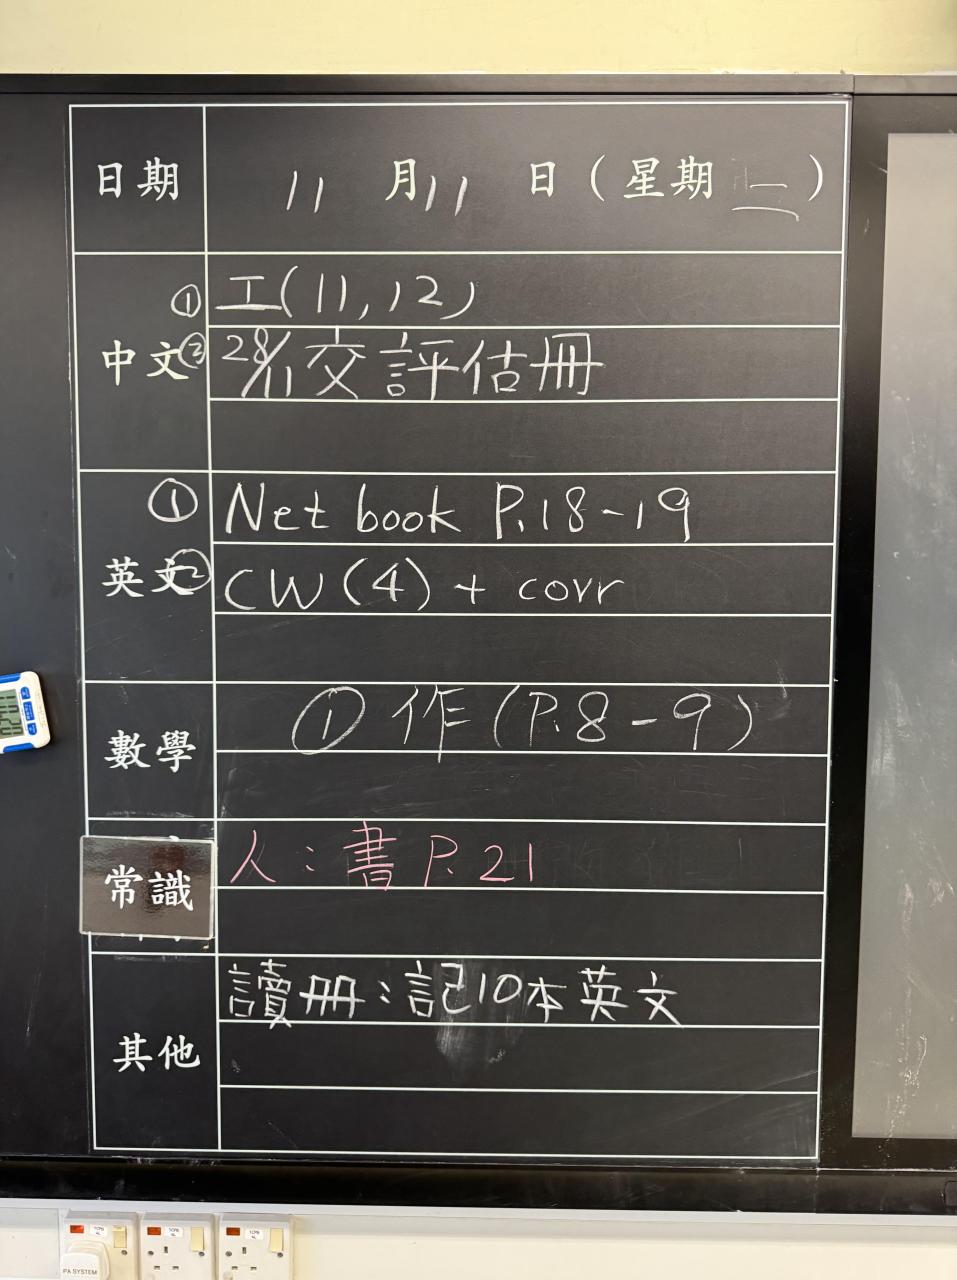 日期 11 月 11 日 ( 星期 二 )
中文 ① 工(11, 12)
② 28/11 交評估冊
英文 ① Net book P.18-19
② CW (4) + corr
數學 ① 作 (P.8-9)
常識 人：書 P.21
其他 讀冊：記10本英文
PA SYSTEM